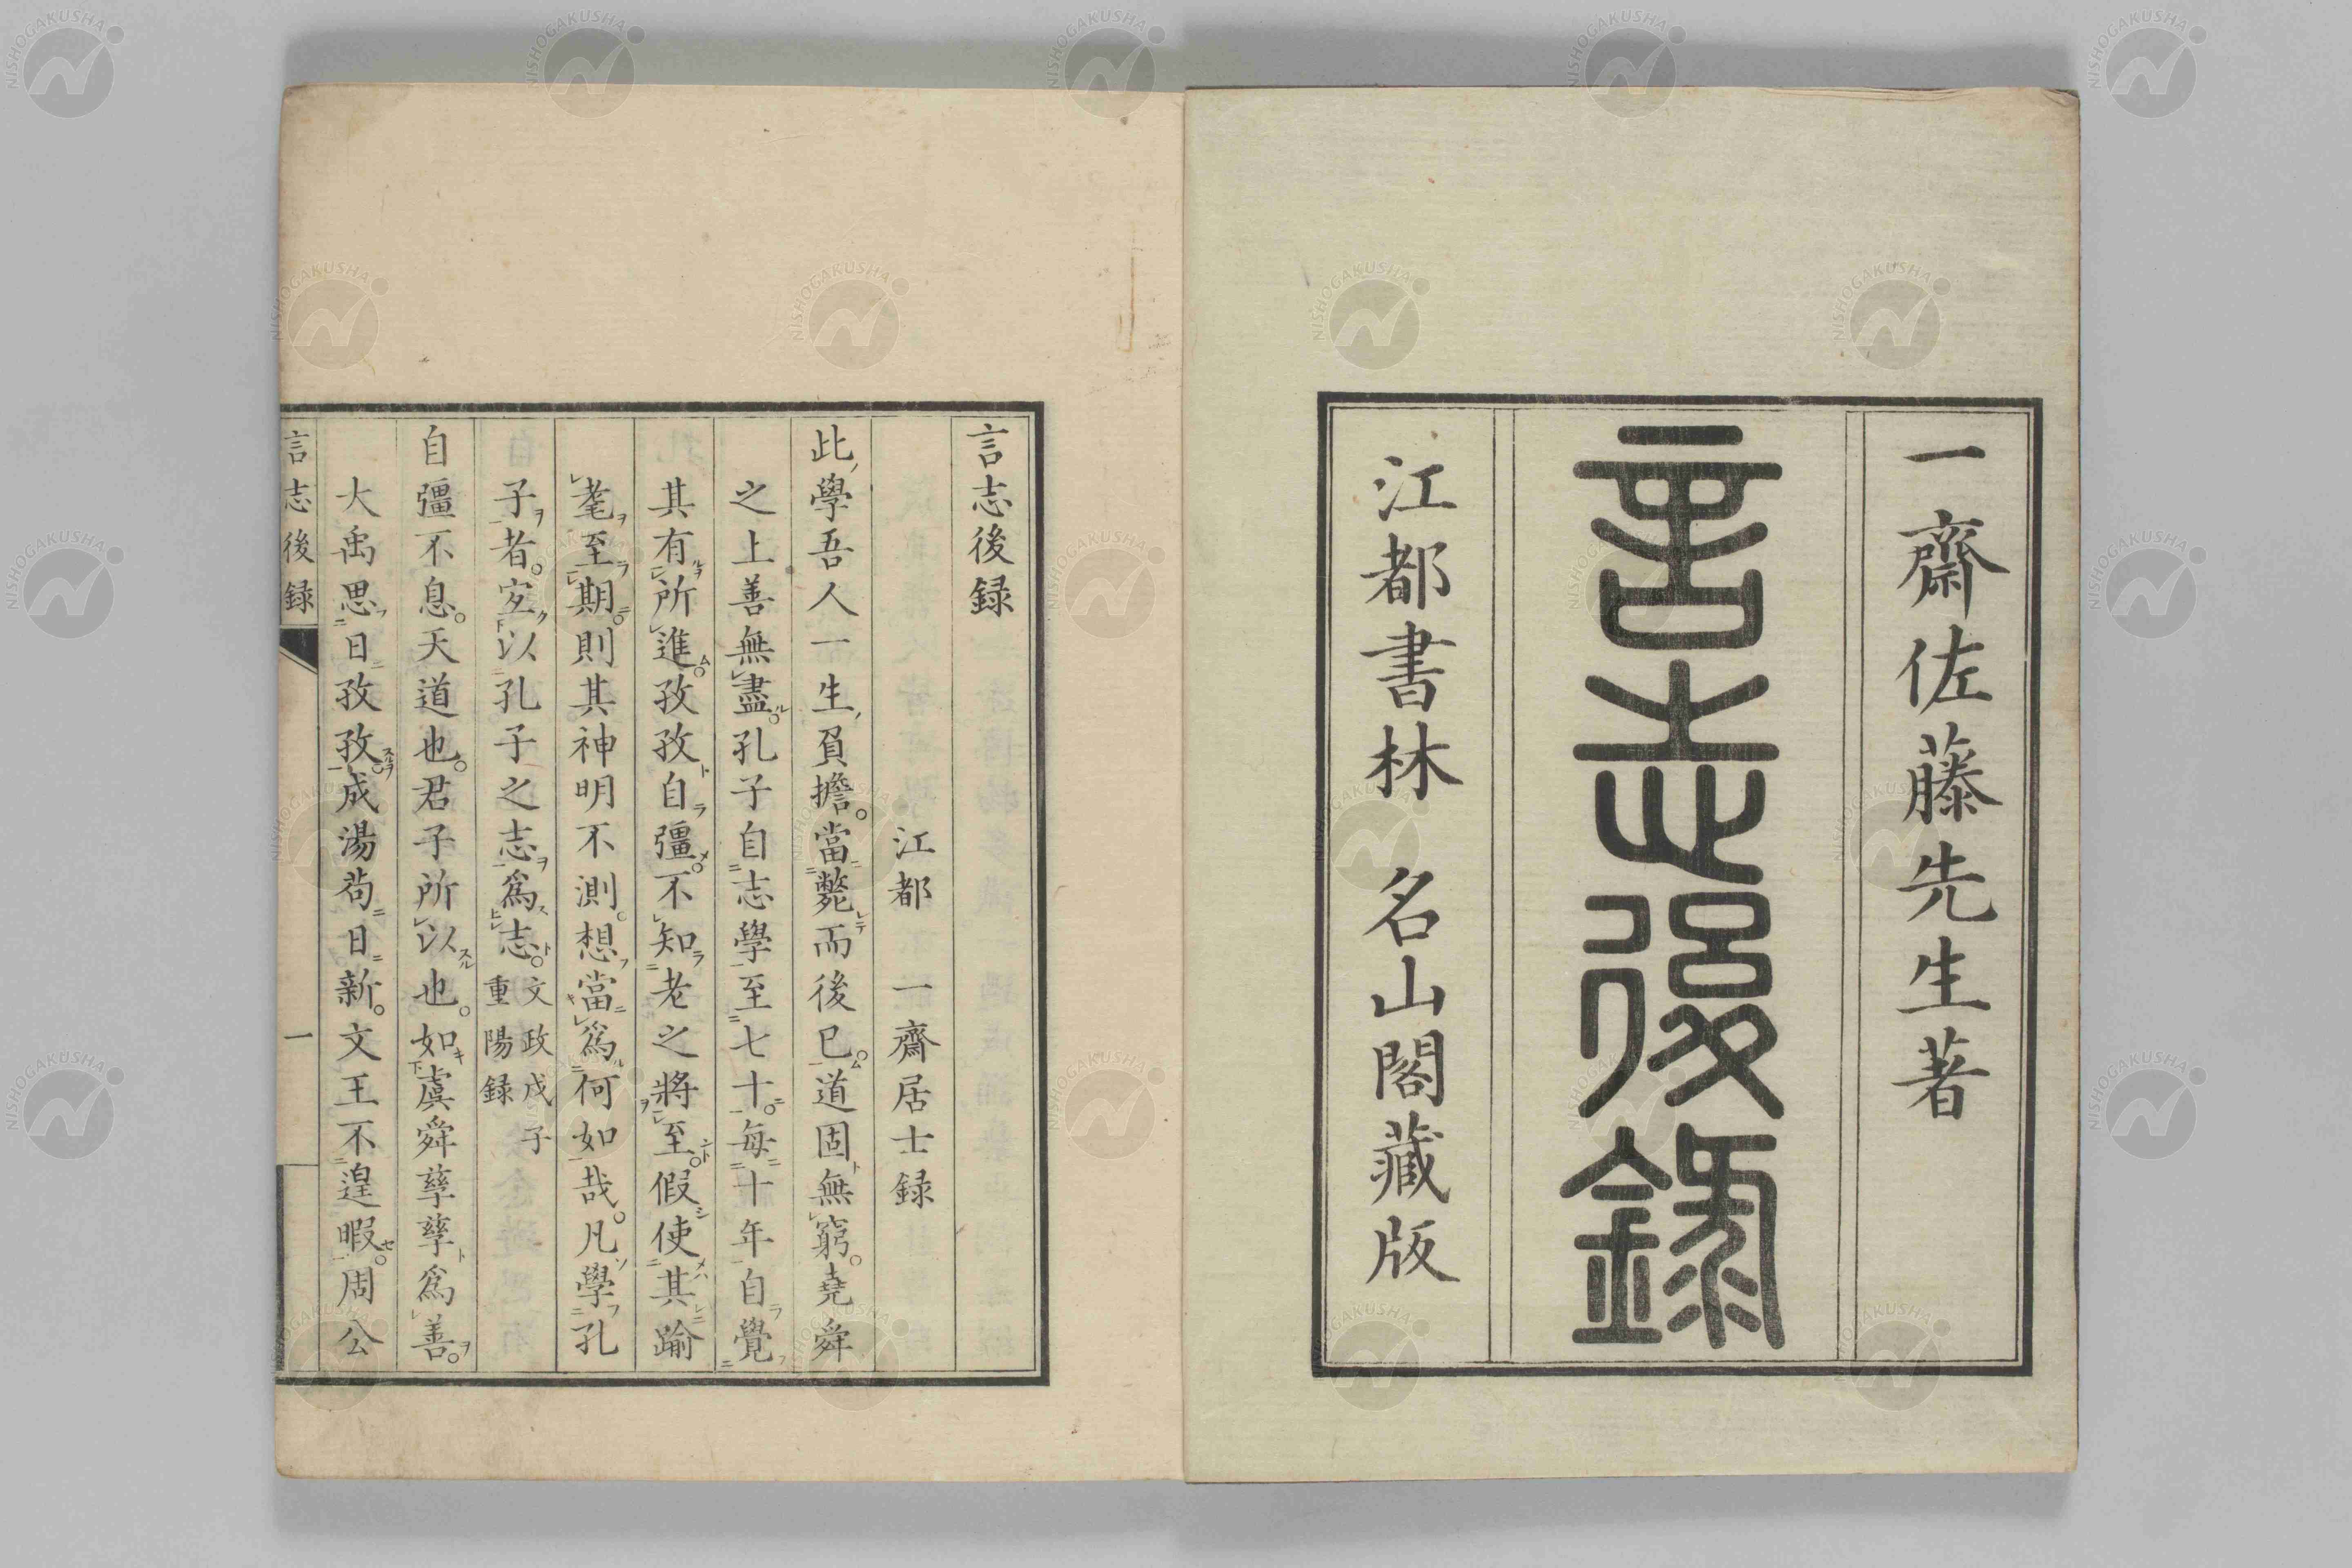 一齋佐藤先生著
言志後錄
江都書林 名山閣藏版
言志後録
江都 一齋居士録
此學吾人一生負擔。當斃而後已。道固無窮。堯舜
之上善無盡。孔子自志學至七十。每十年自覺
其有所進。孜孜自彊。不知老之將至。假使其踰
耄至期。則其神明不測。想當爲何如哉。凡學孔
子者。宜以孔子之志爲志。文政戊子
重陽録
自彊不息。天道也。君子所以也。如虞舜孳孳爲善。
大禹思日孜孜。成湯苟日新。文王不遑暇。周公
言志後録 一
NISHOGAKUSHA